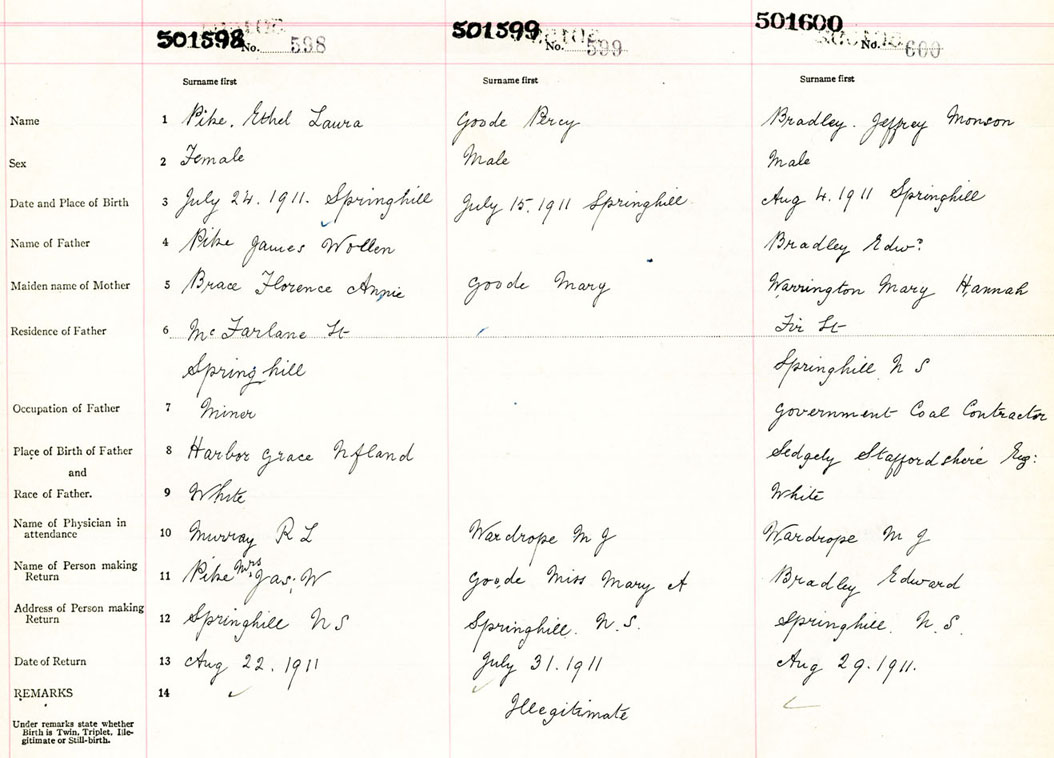 501598 No. 598 501599 No. 599 501600 No. 600
Surname first Surname first Surname first
Name 1 Pike, Ethel Laura Goode Percy Bradley. Jeffrey Monson
Sex 2 Female Male Male
Date and Place of Birth 3 July 24. 1911. Springhill July 15. 1911 Springhill Aug 4. 1911 Springhill
Name of Father 4 Pike James Wollen Bradley Edwd
Maiden name of Mother 5 Brace Florence Annie Goode Mary Warrington Mary Hannah
Residence of Father 6 McFarlane St Fir St
Springhill Springhill N S
Occupation of Father 7 Miner Government Coal Contractor
Place of Birth of Father 8 Harbor Grace Nfland Sedgely Staffordshire Eng:
and
Race of Father. 9 White White
Name of Physician in
attendance 10 Murray R L Wardrope M J Wardrope M J
Name of Person making
Return 11 Pike Mrs Jas. W Goode Miss Mary A Bradley Edward
Address of Person making
Return 12 Springhill N S Springhill. N. S. Springhill. N. S.
Date of Return 13 Aug 22. 1911 July 31. 1911 Aug 29. 1911.
REMARKS 14 Illegitimate
Under remarks state whether
Birth is Twin, Triplet, Ille-
gitimate or Still-birth.